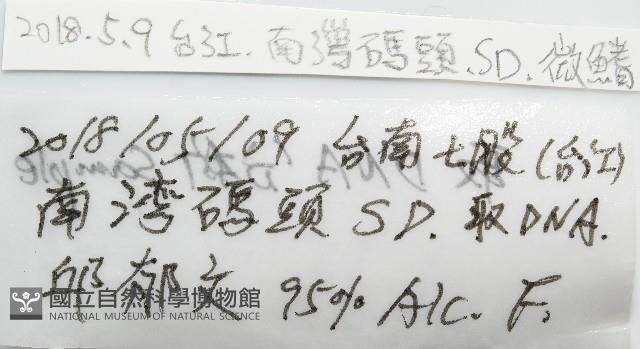 2018.5.9 台江. 南灣碼頭.SD.微鰭
2018/05/09 台南七股(台江)
南湾碼頭 SD. 取DNA.
邱郁文 95% Alc. F.
國立自然科學博物館
NATIONAL MUSEUM OF NATURAL SCIENCE